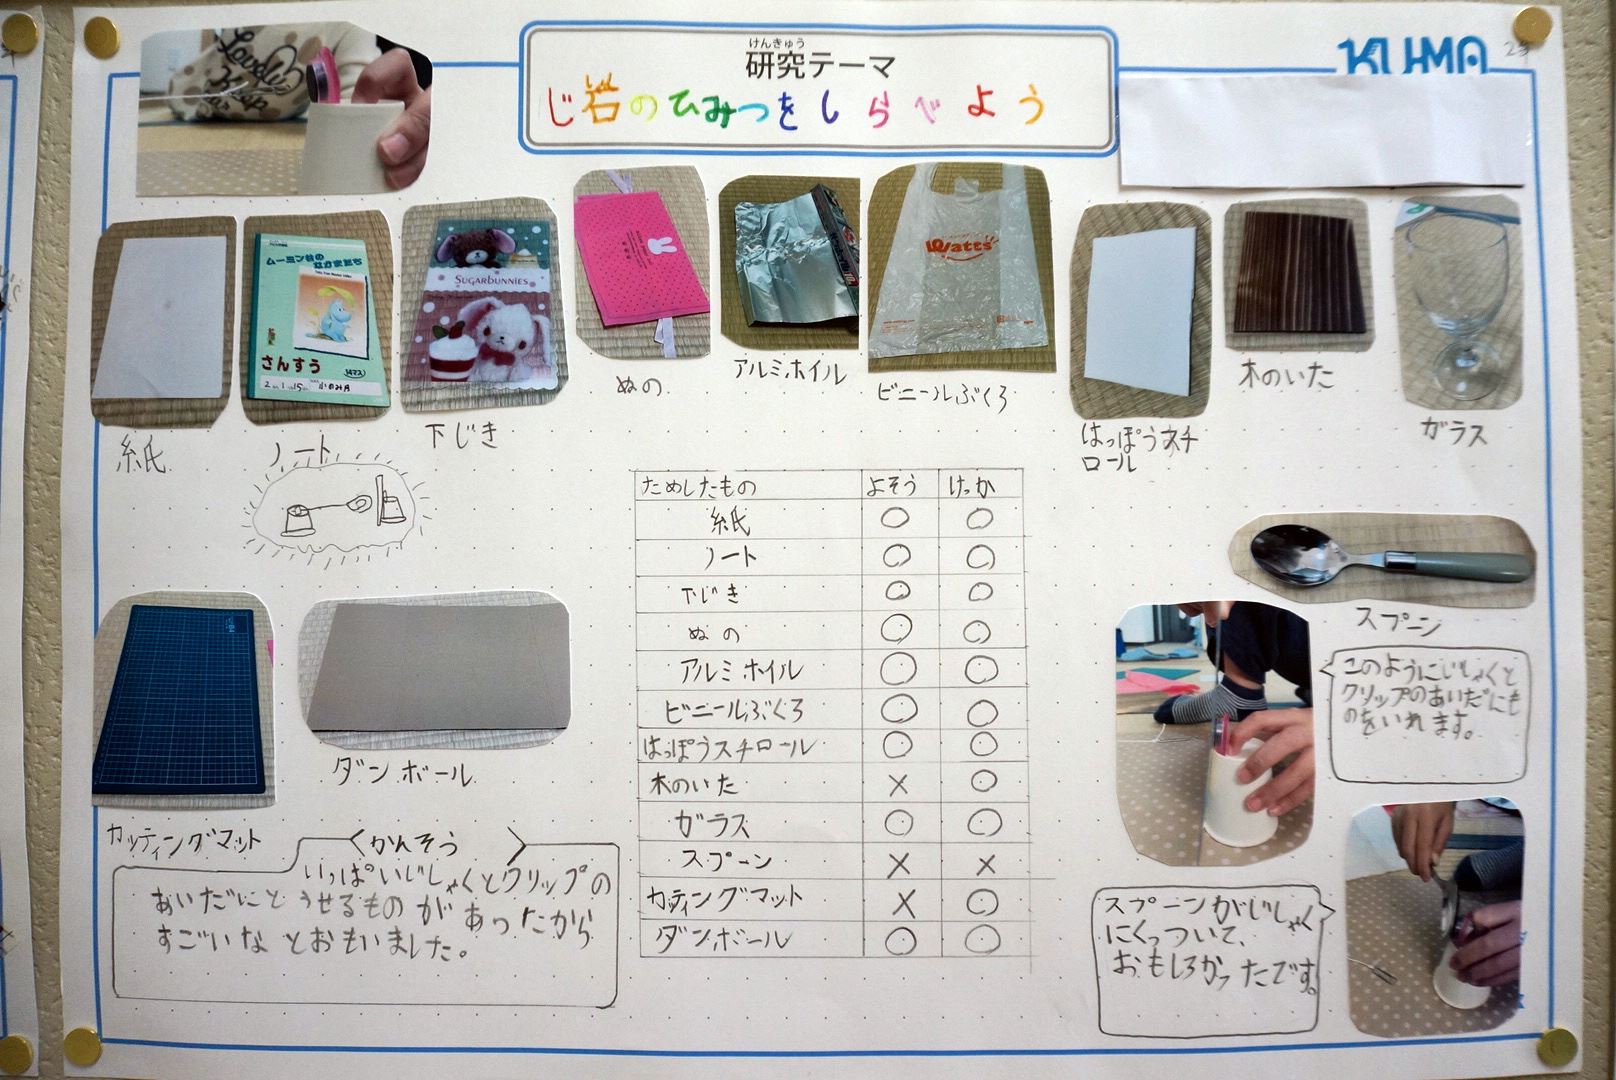 けんきゅう
研究テーマ
じ岩のひみつをしらべよう
KUMA
Lovely
ムーミン谷の
なかまたち
さんすう
14マス
SUGARBUNNIES
Watts
紙
ノート
下じき
ぬの
アルミホイル
ビニールぶくろ
はっぽうスチ
ロール
木のいた
ガラス
ためしたもの よそう けっか
紙 ○ ○
ノート ○ ○
下じき ○ ○
ぬの ○ ○
アルミホイル ○ ○
ビニールぶくろ ○ ○
はっぽうスチロール ○ ○
木のいた × ○
ガラス ○ ○
スプーン × ×
カティングマット × ○
ダンボール ○ ○
スプーン
このようにじしゃくと
クリップのあいだにも
のをいれます。
カッティングマット
ダンボール
かんそう
いっぱいじしゃくとクリップの
あいだにとうせるものがあったから
すごいなとおもいました。
スプーンがじしゃく
にくっついて、
おもしろかったです。